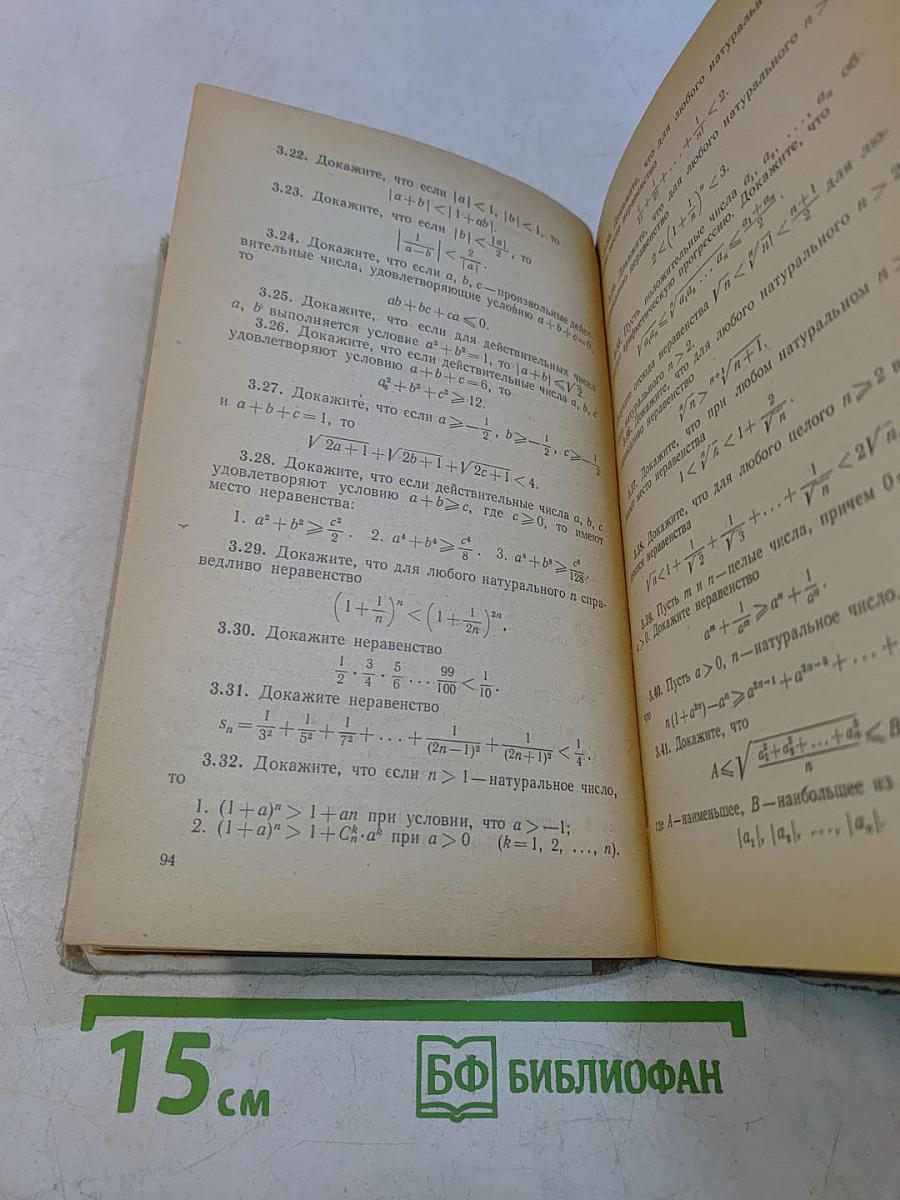 3.22. Докажите, что если |a|<1, |b|<1, то
|a+b|<|1+ab|.
3.23. Докажите, что если |b|<|a|/2, то
|1/(a−b)|<2/|a|.
3.24. Докажите, что если a, b, c—произвольные дейст-
вительные числа, удовлетворяющие условию a+b+c=0,
то
ab+bc+ca⩽0.
3.25. Докажите, что если для действительных чисел
a, b выполняется условие a²+b²=1, то |a+b|⩽√2.
3.26. Докажите, что если действительные числа a, b, c
удовлетворяют условию a+b+c=6, то
a²+b²+c²⩾12.
3.27. Докажите, что если a⩾−1/2, b⩾−1/2, c⩾−1/2
и a+b+c=1, то
√(2a+1)+√(2b+1)+√(2c+1)<4.
3.28. Докажите, что если действительные числа a, b, c
удовлетворяют условию a+b⩾c, где c⩾0, то имеют
место неравенства:
1. a²+b²⩾c²/2. 2. a⁴+b⁴⩾c⁴/8. 3. a⁸+b⁸⩾c⁸/128.
3.29. Докажите, что для любого натурального n спра-
ведливо неравенство
(1+1/n)ⁿ<(1+1/2n)²ⁿ.
3.30. Докажите неравенство
1/2·3/4·5/6...99/100<1/10.
3.31. Докажите неравенство
sₙ=1/3²+1/5²+1/7²+...+1/(2n−1)²+1/(2n+1)²<1/4.
3.32. Докажите, что если n>1—натуральное число,
то
1. (1+a)ⁿ>1+an при условии, что a>−1;
2. (1+a)ⁿ>1+Cₙᵏ·aᵏ при a>0 (k=1, 2, ..., n).
94
что для любого натураль
неравенство
+1/n!<2.
Докажите, что для любого натурального n>
неравенство
2<(1+1/n)ⁿ<3.
Пусть положительные числа a₁, a₂, ..., aₙ об-
арифметическую прогрессию. Докажите, что
√(a₁aₙ)⩽ⁿ√(a₁a₂...aₙ)⩽(a₁+aₙ)/2.
отсюда неравенства √n<ⁿ√(n!)<(n+1)/2 для лю-
натурального n>2.
Докажите, что для любого натурального n>2
неравенство
ⁿ√n>ⁿ⁺¹√(n+1).
3.37. Докажите, что при любом натуральном n
место неравенства
1<ⁿ√n<1+2/√n.
3.38. Докажите, что для любого целого n⩾2
неравенства
√n<1+1/√2+1/√3+...+1/√n<2√n.
3.39. Пусть m и n—целые числа, причем 0
a>0. Докажите неравенство
aᵐ+1/aᵐ⩾aⁿ+1/aⁿ.
3.40. Пусть a>0, n—натуральное число.
что
n(1+a²ⁿ)−aⁿ⩾a²ⁿ⁻¹+a²ⁿ⁻³+...+
3.41. Докажите, что
A⩽√((a₁²+a₂²+...+aₙ²)/n)⩽B
где A—наименьшее, B—наибольшее из
|a₁|, |a₂|, ..., |aₙ|.
15 см
БФ БИБЛИОФАН